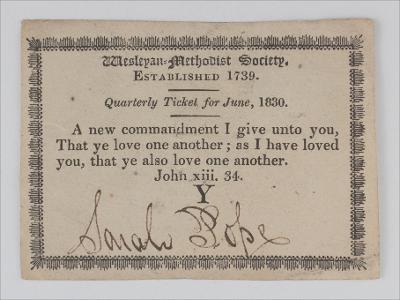 Wesleyan-Methodist Society.
ESTABLISHED 1739.
Quarterly Ticket for June, 1830.
A new commandment I give unto you,
That ye love one another; as I have loved
you, that ye also love one another.
John xiii. 34.
Y
Sarah Pope